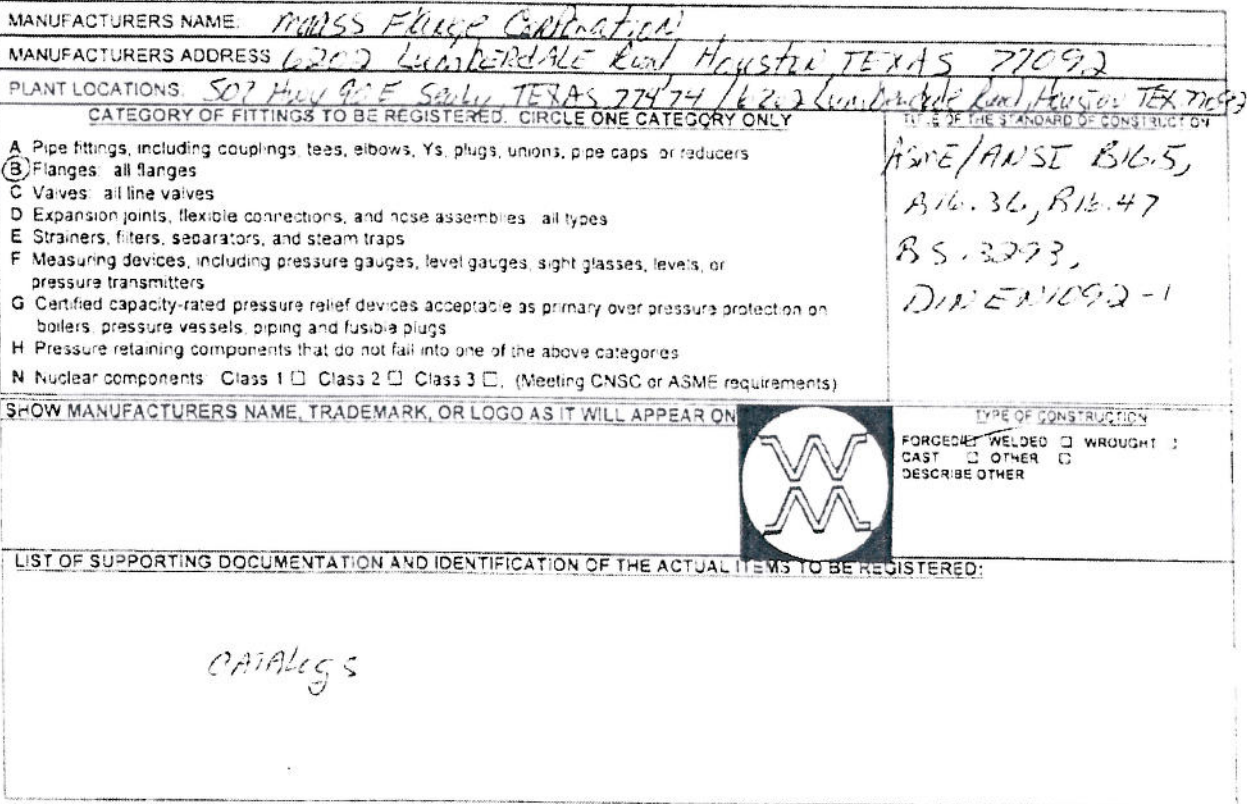 MANUFACTURERS NAME: Maass Flange Corporation
MANUFACTURERS ADDRESS 6202 LumBERDALE Road Houston TEXAS 77092
PLANT LOCATIONS: 507 Hwy 90 E Sealy, TEXAS 77474 / 6202 Lumberdale Road, Houston TEX. 77092
CATEGORY OF FITTINGS TO BE REGISTERED. CIRCLE ONE CATEGORY ONLY
A Pipe fittings, including couplings, tees, elbows, Ys, plugs, unions, pipe caps or reducers
B Flanges: all flanges
C Valves: all line valves
D Expansion joints, flexible connections, and hose assemblies all types
E Strainers, filters, separators, and steam traps
F Measuring devices, including pressure gauges, level gauges, sight glasses, levels, or
pressure transmitters
G Certified capacity-rated pressure relief devices acceptable as primary over pressure protection on
boilers, pressure vessels, piping and fusible plugs
H Pressure retaining components that do not fall into one of the above categories
N Nuclear components: Class 1 ☐ Class 2 ☐ Class 3 ☐, (Meeting CNSC or ASME requirements)
TITLE OF THE STANDARD OF CONSTRUCTION
ASME/ANSI B16.5,
B16.36, B16.47
BS.3293,
DIN EN1092-1
SHOW MANUFACTURERS NAME, TRADEMARK, OR LOGO AS IT WILL APPEAR ON
W
M
TYPE OF CONSTRUCTION
FORGED ☑ WELDED ☐ WROUGHT ☐
CAST ☐ OTHER ☐
DESCRIBE OTHER
LIST OF SUPPORTING DOCUMENTATION AND IDENTIFICATION OF THE ACTUAL ITEMS TO BE REGISTERED:
CATALogs